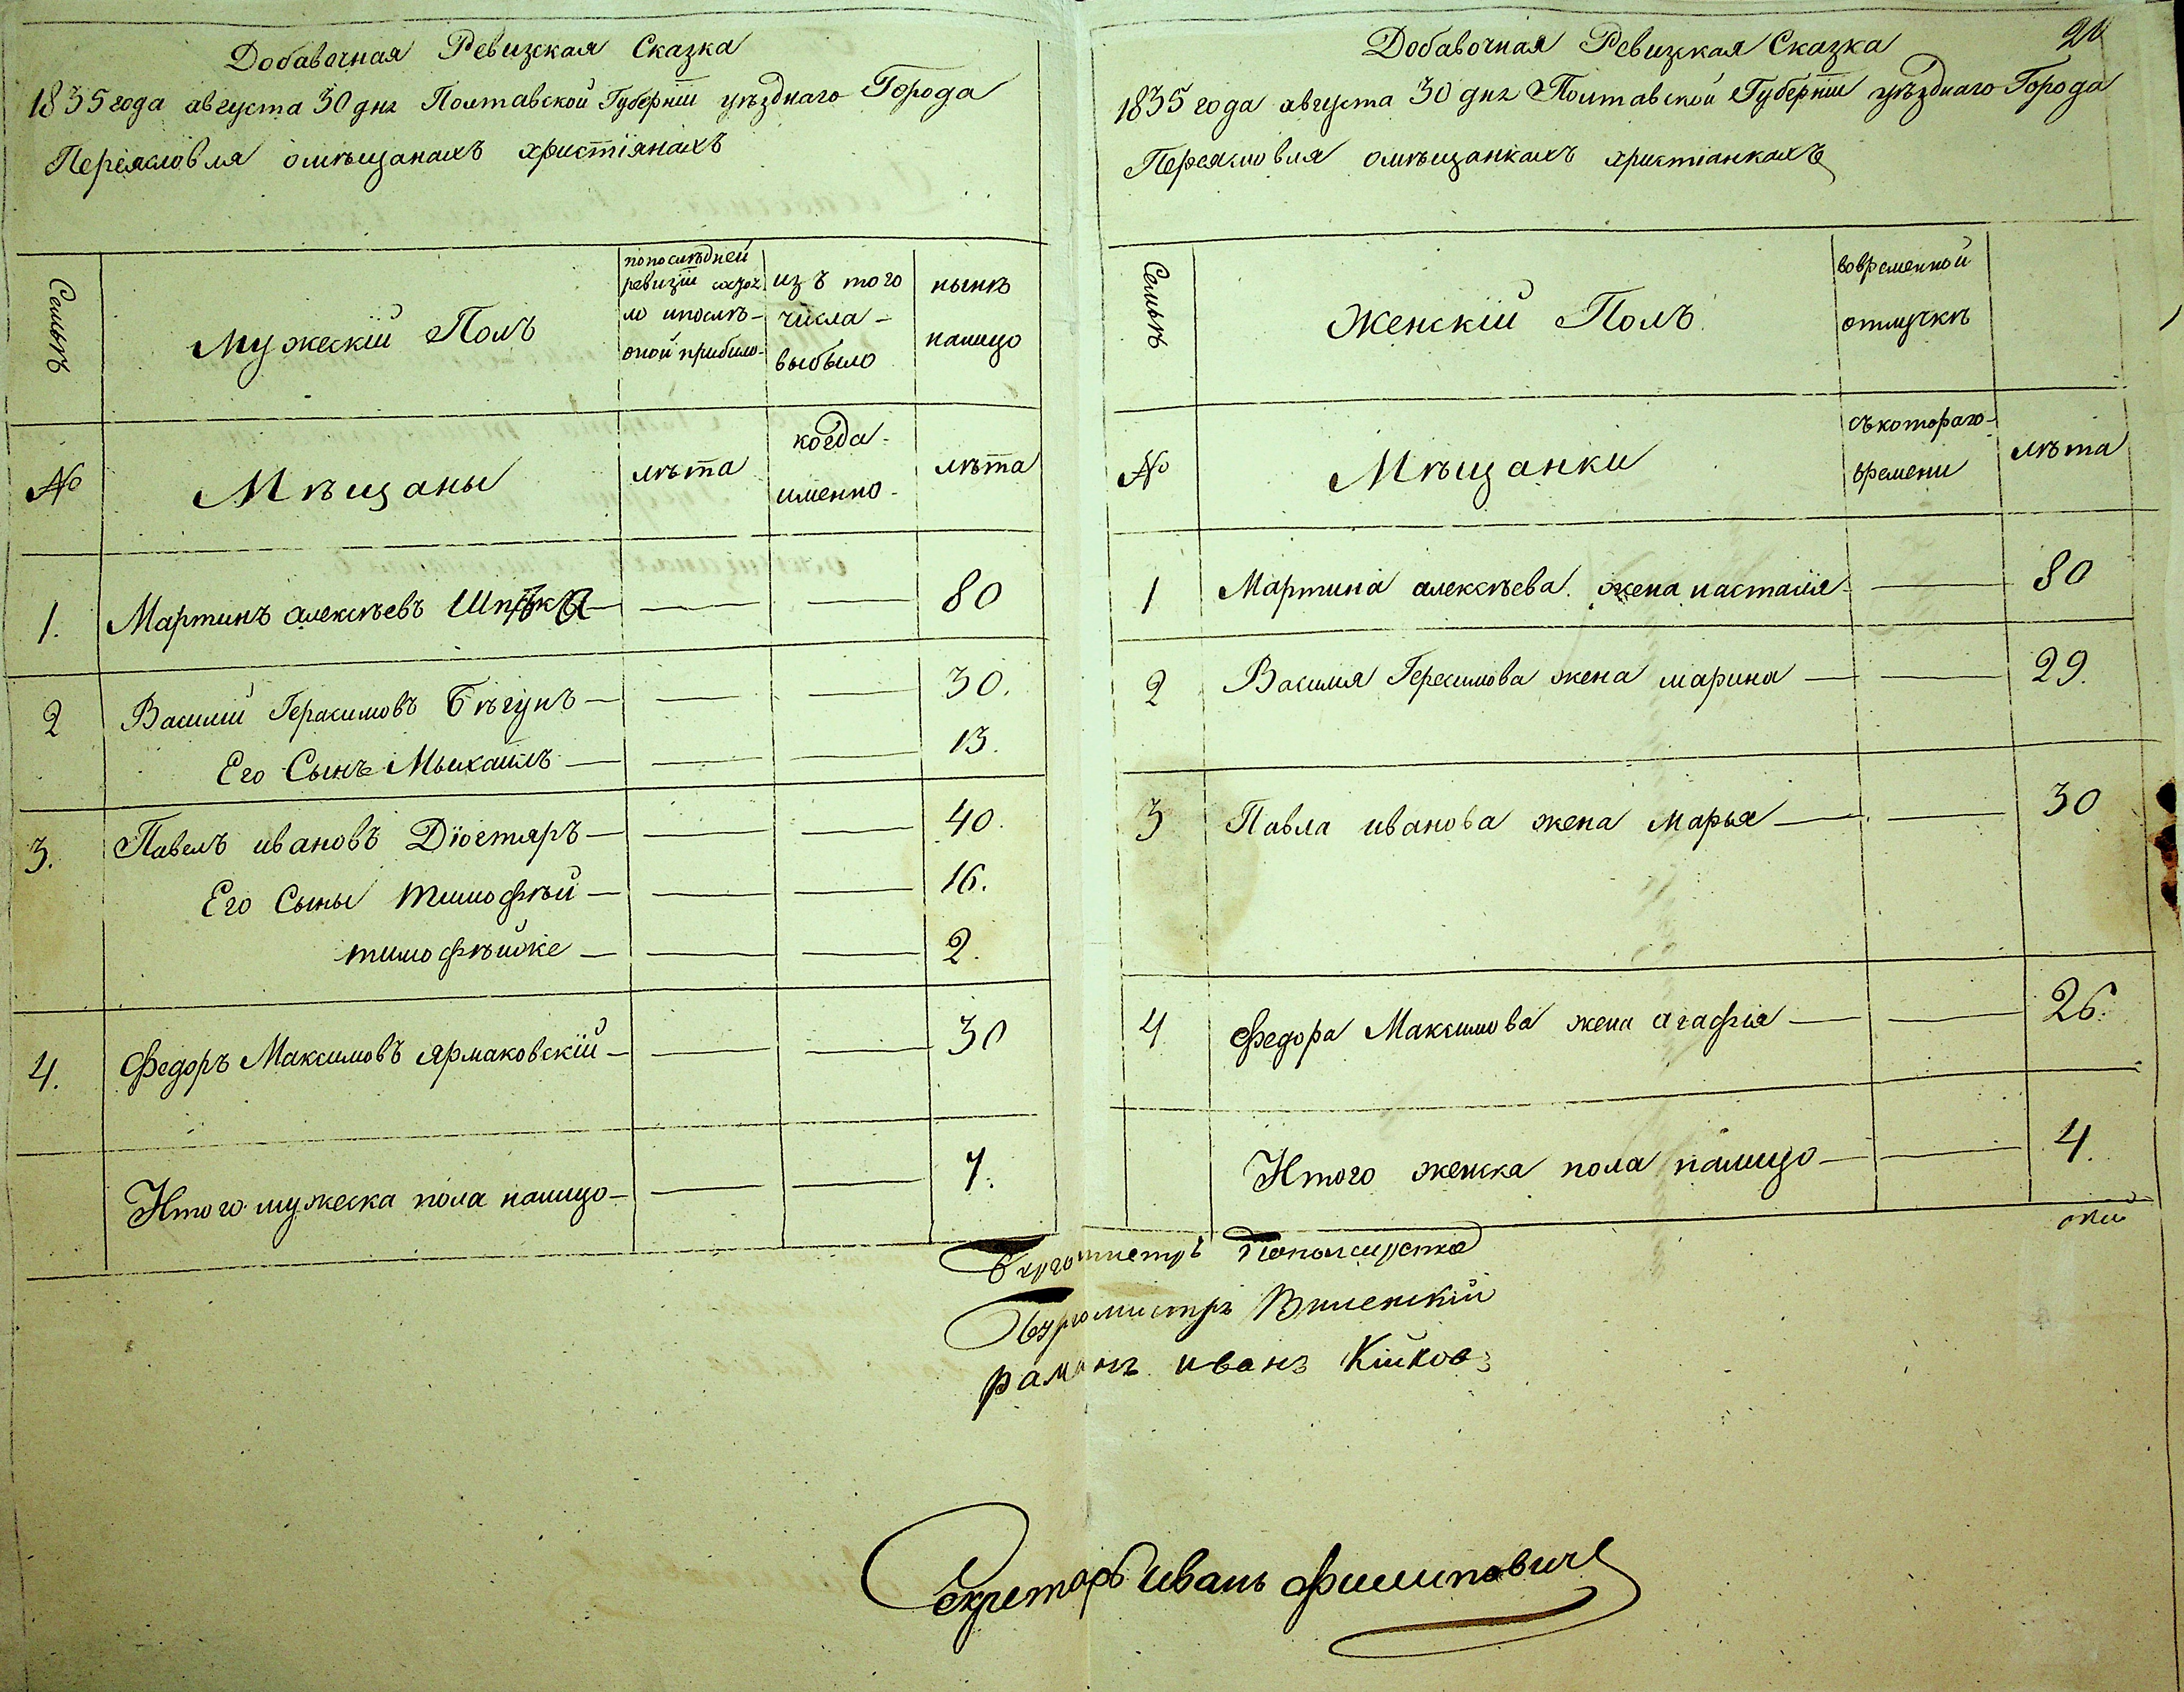 Добавочная Ревизская Сказка
1835 года августа 30 дня Полтавской Губерніи уѣзднаго Города
Переясловля омѣщанахъ христіянахъ
Семьѣ
Мужескій Полъ
попослѣдней
ревизіи состоя
ло ипослѣ-
оной прибыло-
изъ того
числа-
выбыло
нынѣ
налицо
№
Мѣщаны
лѣта
когда-
именно-
лѣта
1. Мартинъ алексѣевъ — — 80
2 Василий Герасимовъ Бѣгунъ — — — 30.
Его Сынъ Мыхаилъ — — — 13.
3. Павелъ ивановъ Діогтяръ — — — 40.
Его Сыны тимофѣй — — — 16.
тимофѣйже — — — 2.
4. Федоръ Максимовъ Ярмаковскій — — — 30
Итого мужеска пола налицо — — — 7.
Добавочная Ревизкая Сказка
20
1835 года августа 30 дня Полтавской Губерніи уѣзднаго Города
Переясловля омѣщанкахъ христіанкахъ
Семьѣ
Женскій Полъ
вовременной
отлучкѣ
№
Мѣщанки
съкотораго-
времени
лѣта
1 Мартина алексѣева жена настасія — 80
2 Василия Герасимова жена марина — — 29.
3 Павла иванова жена Марья — — 30
4 Федора Максимова жена агафія — — 26.
Итого женска пола налицо — — 4.
Бургомистръ
Бургомистръ Виленский
иванъ
Секретарь иванъ Филиповичъ